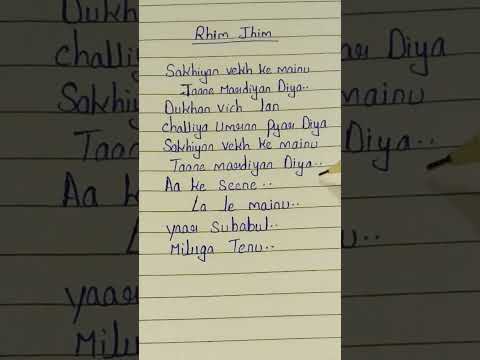 Rhim Jhim
Sakhiyan vekh ke mainu
Taane maardiyan Diya..
Dukhan vich lan
challiya Umran Pyar Diya
Sakhiyan vekh ke mainu
Taane maardiyan Diya..
Aa ke Seene..
La le mainu..
yaar Subabul..
Miluga Tenu..